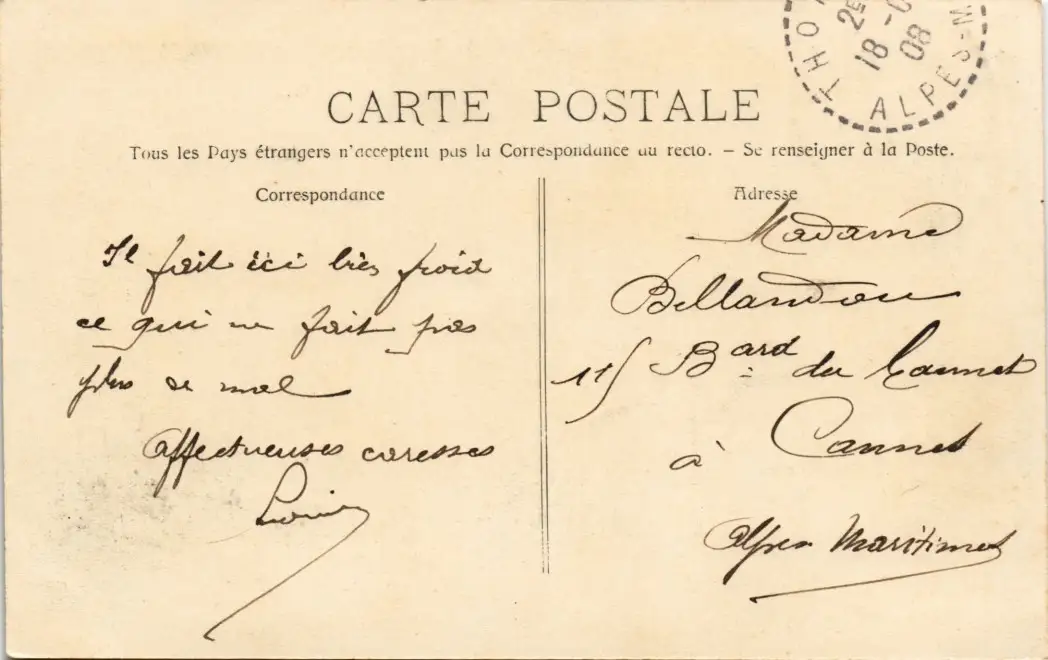 THO
2E
18 -
08
ALPES-M
CARTE POSTALE
Tous les Pays étrangers n'acceptent pas la Correspondance au recto. – Se renseigner à la Poste.
Correspondance
Il fait ici très froid
ce qui ne fait pas
plus de mal
Affectueuses caresses
Louis
Adresse
Madame
Bellandou
115 Bard du Cannet
à Cannes
Alpes Maritimes